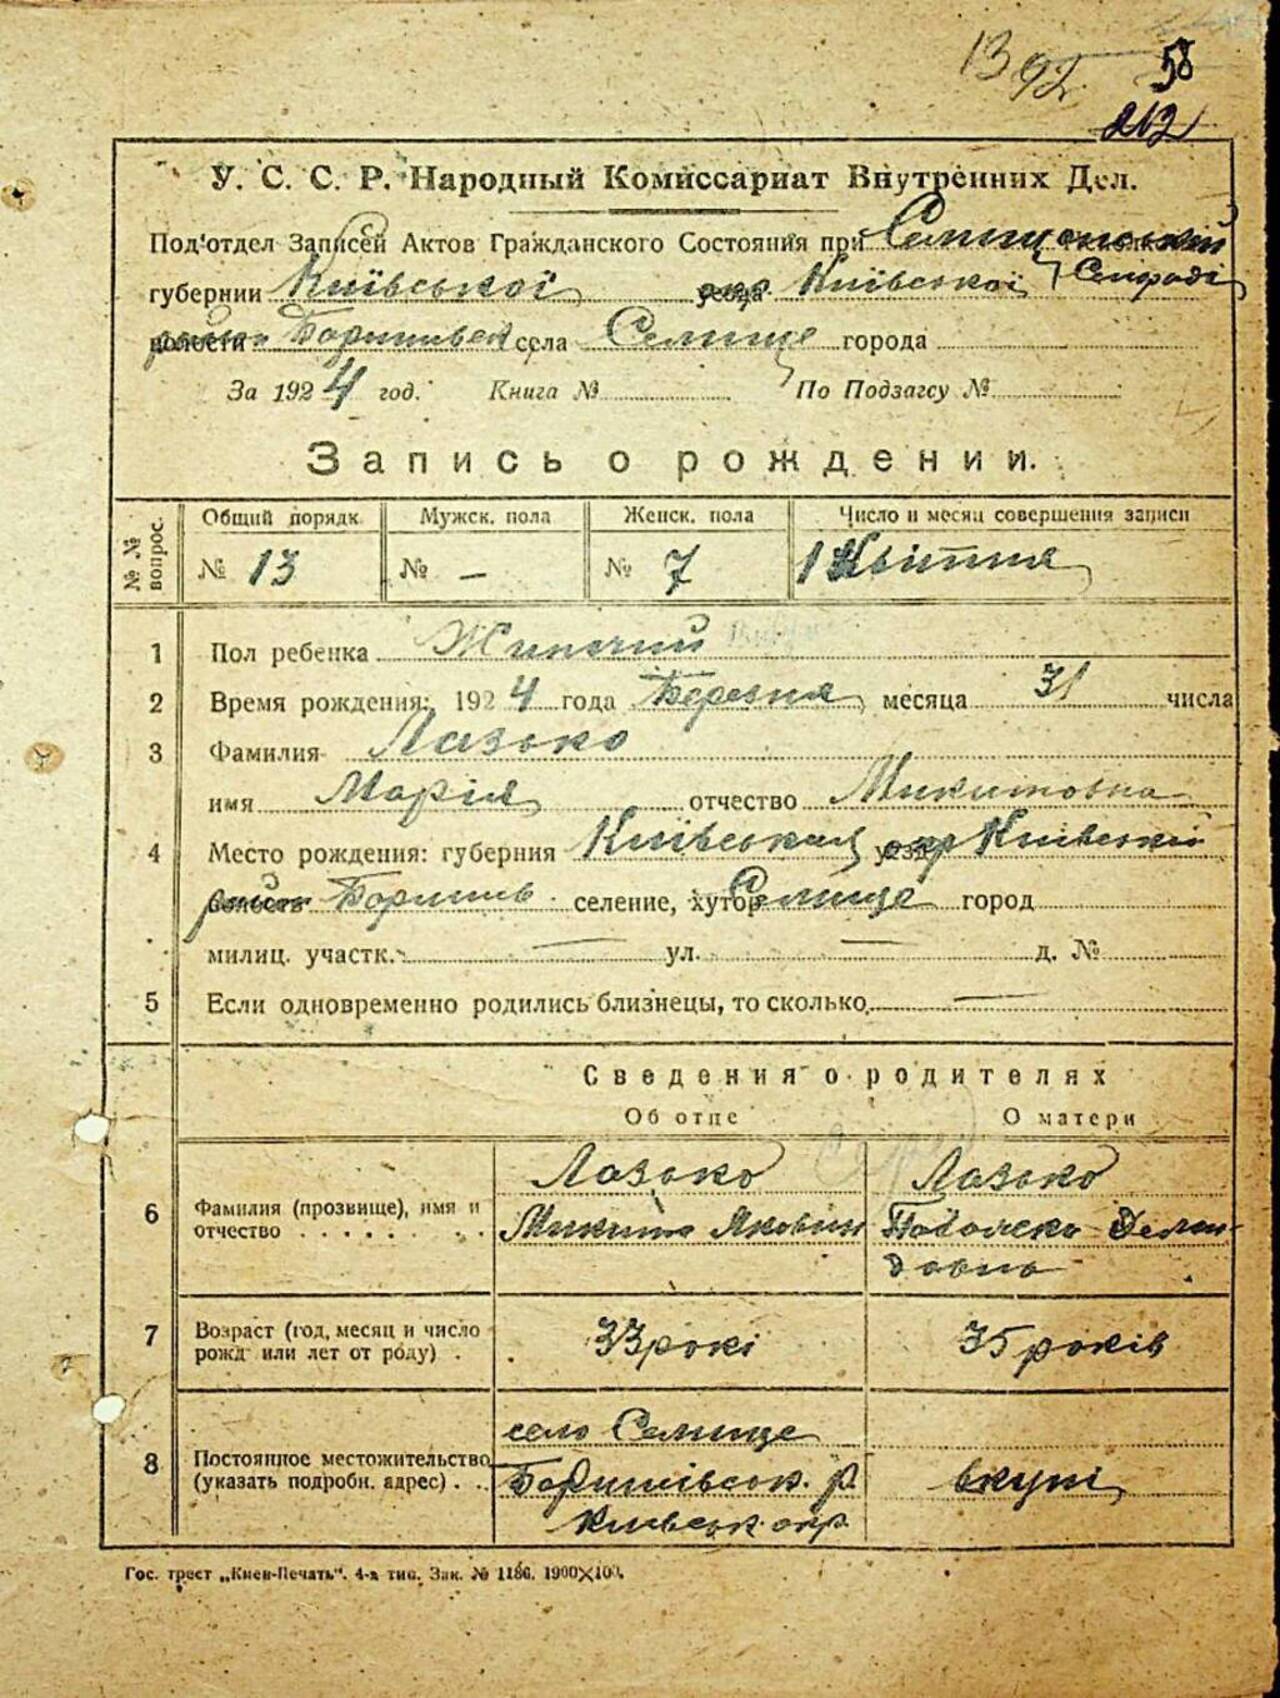 1392 58
212
У. С. С. Р. Народный Комиссариат Внутренних Дел.
Под'отдел Записей Актов Гражданского Состояния при Селищанській
губернии Київської окр. Київської Сельраді
волости район Боришівськ села Селище города
За 1924 год. Книга № По Подзагсу №
Запись о рождении.
№ № вопрос. Общий порядк. Мужск. пола Женск. пола Число и месяц совершения записи
№ 13 № — № 7 1 Квітня
1 Пол ребенка Жиночий
2 Время рождения: 1924 года Березня месяца 31 числа
3 Фамилия Лазько
имя Марія отчество Микитовна
4 Место рождения: губерния Київськая уезд окр Київській
волость район Боришів. селение, хутор Селище город
милиц. участк. — ул. — д. №
5 Если одновременно родились близнецы, то сколько —
Сведения о родителях
Об отце О матери
Лазько Лазько
6 Фамилия (прозвище), имя и отчество Микита Яковин
довна
7 Возраст (год, месяц и число рожд или лет от роду) . 33 рокі 35 років
село Селище
8 Постоянное местожительство (указать подробн. адрес) . . Боришівськ. р. вкупі
Київськ. окр.
Гос. трест „Киев-Печать“. 4-я тип. Зак. № 1186. 1900×100.